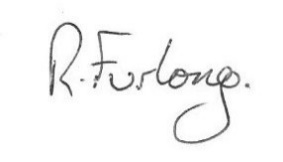 R. Furlong.